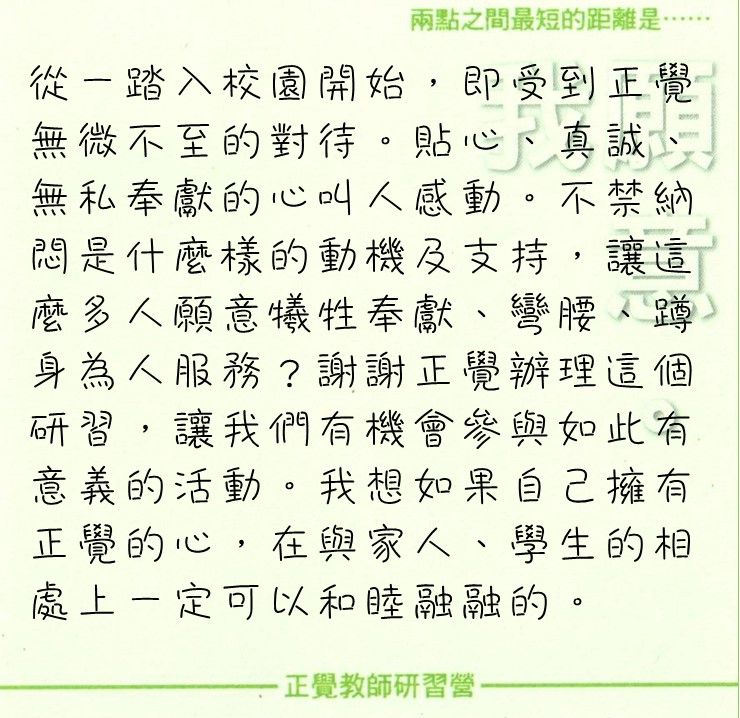 兩點之間最短的距離是⋯⋯
我願意。
從一踏入校園開始，即受到正覺
無微不至的對待。貼心、真誠、
無私奉獻的心叫人感動。不禁納
悶是什麼樣的動機及支持，讓這
麼多人願意犧牲奉獻、彎腰、蹲
身為人服務？謝謝正覺辦理這個
研習，讓我們有機會參與如此有
意義的活動。我想如果自己擁有
正覺的心，在與家人、學生的相
處上一定可以和睦融融的。
正覺教師研習營